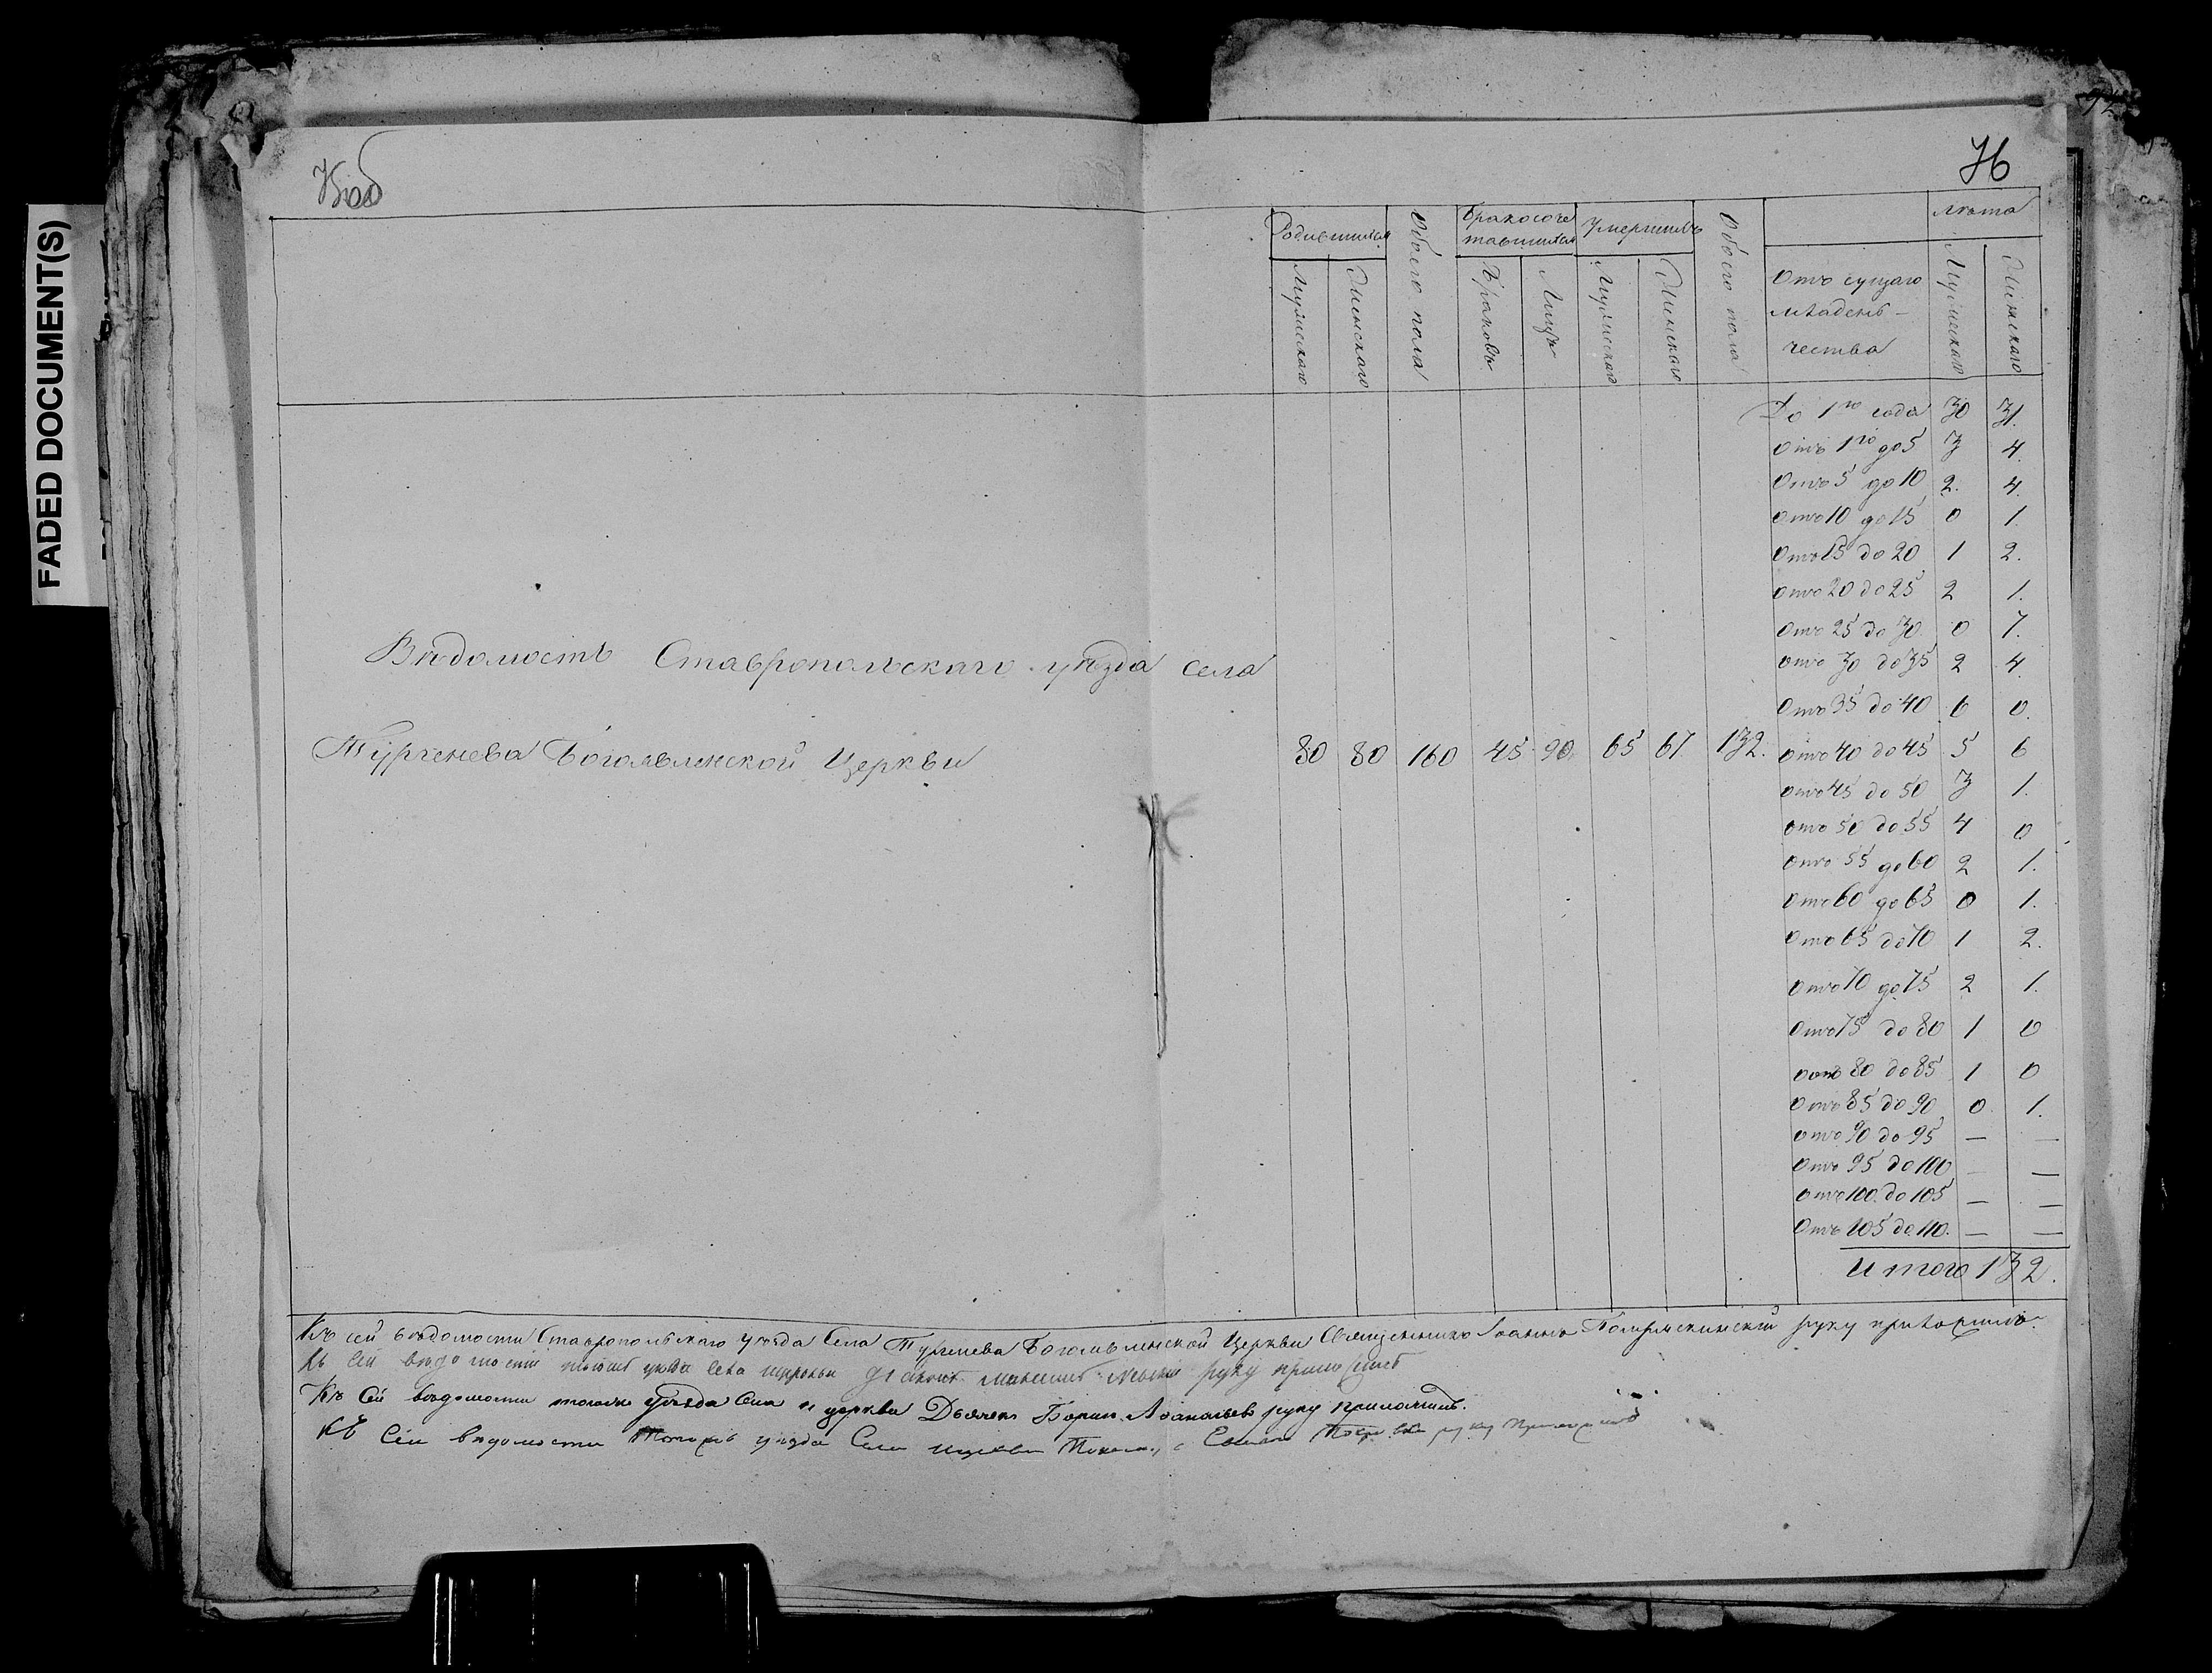 FADED DOCUMENT(S)
75 об
76
92
Родившихся
Обоего пола
Бракосоче
тавшихся
Умершихъ
Обоего пола
лѣта
Мужескаго
Женскаго
Браковъ
Лицъ
Мужескаго
Женскаго
Отъ сущаго
младен-
чества
Мужескаго
Женскаго
До 1го года 30 31.
Отъ 1го до 5 3 4.
Отъ 5 до 10 2. 4.
Отъ 10 до 15 0 1.
Отъ 15 до 20 1 2.
Отъ 20 до 25 2 1.
Отъ 25 до 30 0 7.
Отъ 30 до 35 2 4.
Отъ 35 до 40 6 0.
Вѣдомость Ставропольскаго уѣзда села
Тургенева Богоявленской Церкви 80 80 160 45 90. 65 67 132. Отъ 40 до 45 5 6
Отъ 45 до 50 3 1.
Отъ 50 до 55 4 0
Отъ 55 до 60 2 1.
Отъ 60 до 65 0 1.
Отъ 65 до 70 1 2.
Отъ 70 до 75 2 1.
Отъ 75 до 80 1 0
Отъ 80 до 85 1 0
Отъ 85 до 90 0 1.
Отъ 90 до 95 — —
Отъ 95 до 100 — —
Отъ 100 до 105 — —
Отъ 105 до 110. — —
Итого 132.
Къ сей вѣдомости Ставропольскаго уѣзда Села Тургенева Богоявленской Церкви Священникъ Іоаннъ руку приложилъ.
Къ сей вѣдомости тогожъ уѣзда села церкви діаконъ руку приложилъ
Къ Сей вѣдомости тогоже уѣзда Села и церкви Дьячекъ Борисъ Афанасьевъ руку приложилъ.
Къ Сей вѣдомости Тогожъ уѣзда Села церкви руку приложилъ